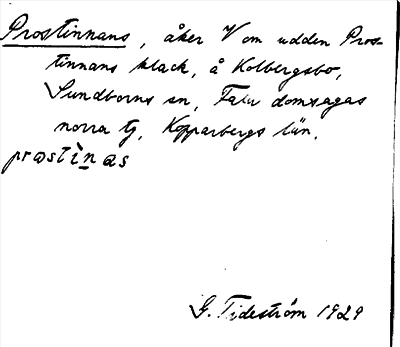 Prostinnans, åker V om udden Pros-
tinnans klack, å Kolbergsbo,
Sundborns sn, Falu domsagas
norra tg, Kopparbergs län.
prostinas
G. Tideström 1929